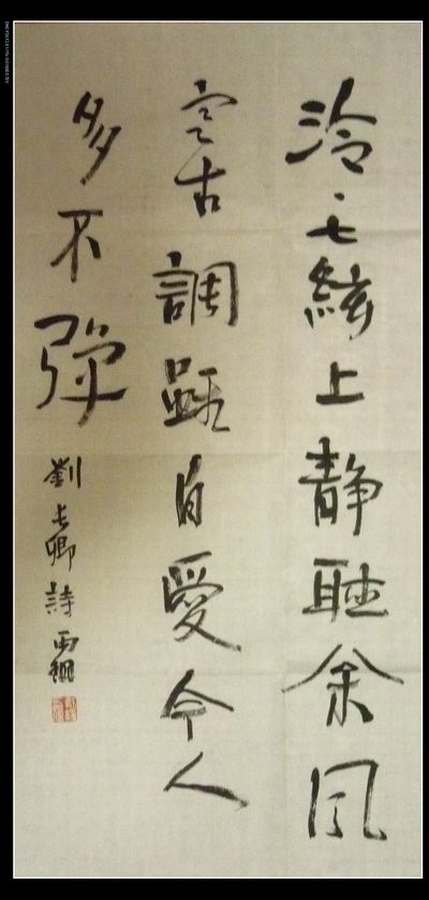 泠々七絃上静聽余風
寒古調雖自愛今人
多不彈
劉長卿詩